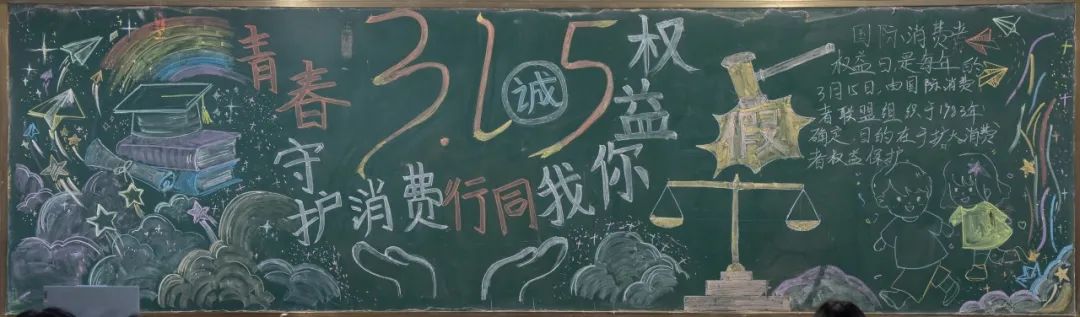 青春守护消费
权益你我同行
3.15
诚
假
国际消费者
权益日是每年的
3月15日,由国际消费
者联盟组织于1983年
确定,目的在于扩大消费
者权益保护